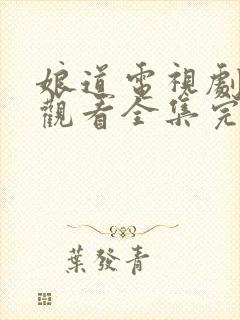 娘道電視劇
觀看全集完
葉發青